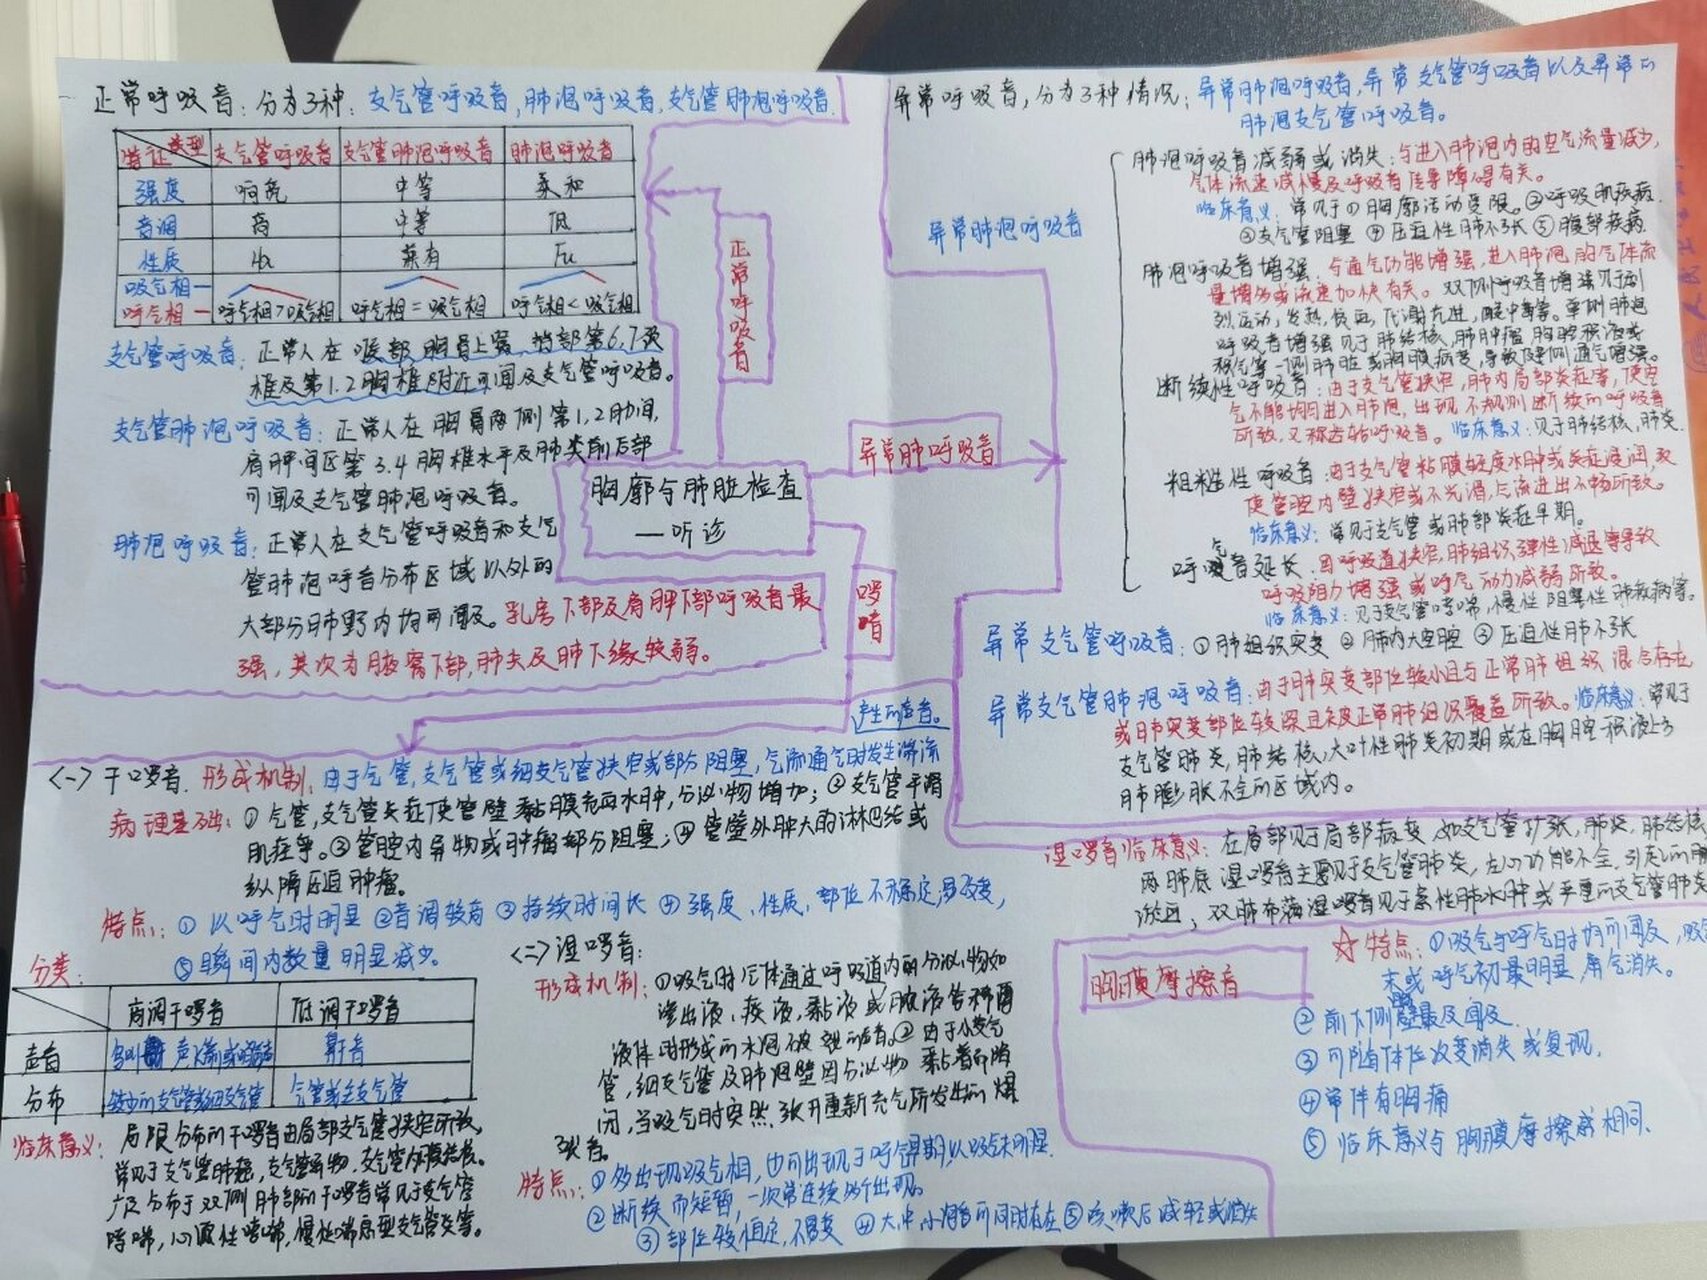 正常呼吸音：分为3种：支气管呼吸音，肺泡呼吸音，支气管肺泡呼吸音.
特征 类型 支气管呼吸音 支气管肺泡呼吸音 肺泡呼吸音
强度 响亮 中等 柔和
音调 高 中等 低
性质 兼有
吸气相—
呼气相— 呼气相>吸气相 呼气相=吸气相 呼气相<吸气相
支气管呼吸音：正常人在喉部，胸骨上窝，背部第6.7颈
椎及第1.2胸椎附近可闻及支气管呼吸音。
支气管肺泡呼吸音：正常人在胸骨两侧第1.2肋间，
肩胛间区第3.4胸椎水平及肺尖前后部
可闻及支气管肺泡呼吸音。
肺泡呼吸音：正常人在支气管呼吸音和支气
管肺泡呼音分布区域以外的
大部分肺野内均可闻及。乳房下部及肩胛下部呼吸音最
强，其次为腋窝下部，肺尖及肺下缘较弱。
正常呼吸音
胸廓与肺脏检查
—听诊
异常肺呼吸音
啰音
异常呼吸音，分为3种情况：异常肺泡呼吸音，异常支气管呼吸音以及异常的
肺泡支气管呼吸音。
异常肺泡呼吸音
肺泡呼吸音减弱或消失：与进入肺泡内的空气流量减少，
气体流速减慢及呼吸音传导障碍有关。
临床意义：常见于①胸廓活动受限。②呼吸肌疾病.
③支气管阻塞 ④压迫性肺不张 ⑤腹部疾病
肺泡呼吸音增强：与通气功能增强，进入肺泡的气体流
量增多或流速加快有关。双侧呼吸音增强见于剧
烈运动，发热，贫血，代谢亢进，酸中毒等。单侧肺泡
呼吸音增强见于肺结核，肺肿瘤，胸腔积液或
积气等一侧肺脏或胸膜病变，导致健侧通气增强。
断续性呼吸音：由于支气管狭窄，肺内局部炎症等，使空
气不能均匀进入肺泡，出现不规则断续的呼吸音
所致，又称齿轮呼吸音。临床意义：见于肺结核，肺炎.
粗糙性呼吸音：由于支气管粘膜轻度水肿或炎症浸润，致
使管腔内壁狭窄或不光滑，气流进出不畅所致。
临床意义：常见于支气管或肺部炎症早期。
呼气音延长：因呼吸道狭窄，肺组织弹性减退等导致
呼吸阻力增强或呼气动力减弱所致。
临床意义：见于支气管哮喘，慢性阻塞性肺疾病等。
异常支气管呼吸音：①肺组织实变 ②肺内大空腔 ③压迫性肺不张
异常支气管肺泡呼吸音：由于肺实变部位较小且与正常肺组织混合存在
或肺实变部位较深且被正常肺组织覆盖所致。临床意义：常见于
支气管肺炎，肺结核，大叶性肺炎初期或在胸腔积液上方
肺膨胀不全的区域内。
产生的声音。
<一>干啰音.形成机制：由于气管，支气管或细支气管狭窄或部分阻塞，气流通气时发生湍流
病理基础：①气管，支气管炎症使管壁黏膜充血水肿，分泌物增加；②支气管平滑
肌痉挛。③管腔内异物或肿瘤部分阻塞；④管壁外肿大的淋巴结或
纵隔压迫肿瘤。
特点：①以呼气时明显 ②音调较高 ③持续时间长 ④强度、性质，部位不稳定，易改变，
⑤瞬间内数量明显减少。
分类：
高调干啰音 低调干啰音
声音 鼾音
分布 较小的支气管或细支气管 气管或主支气管
临床意义：局限分布的干啰音由局部支气管狭窄所致，
常见于支气管肺癌，支气管异物，支气管内膜结核。
广泛分布于双侧肺部的干啰音常见于支气管
哮喘，心源性哮喘，慢性喘息型支气管炎等。
<二>湿啰音：
形成机制：①吸气时气体通过呼吸道内的分泌物如
渗出液、痰液，黏液或脓液等稀薄
液体时形成的水泡破裂的声音。②由于小支气
管，细支气管及肺泡壁因分泌物黏着而陷
闭，当吸气时突然张开重新充气所发生的爆
裂音。
特点：①多出现吸气相，也可出现于呼气早期，以吸气末明显.
②断续而短暂，一次常连续多个出现。
③部位较恒定，不易变 ④大中小湿音可同时存在 ⑤咳嗽后减轻或消失
湿啰音临床意义：在局部见于局部病变，如支气管扩张，肺炎，肺结核
两肺底湿啰音主要见于支气管肺炎，左心功能不全引起的肺
淤血；双肺布满湿啰音见于急性肺水肿或严重的支气管肺炎
胸膜摩擦音
☆特点：①吸气与呼气时均可闻及，吸气
末或呼气初最明显，屏气消失。
②前下侧胸壁最及闻及.
③可随体位改变消失或复现.
④常伴有胸痛
⑤临床意义与胸膜摩擦感相同.